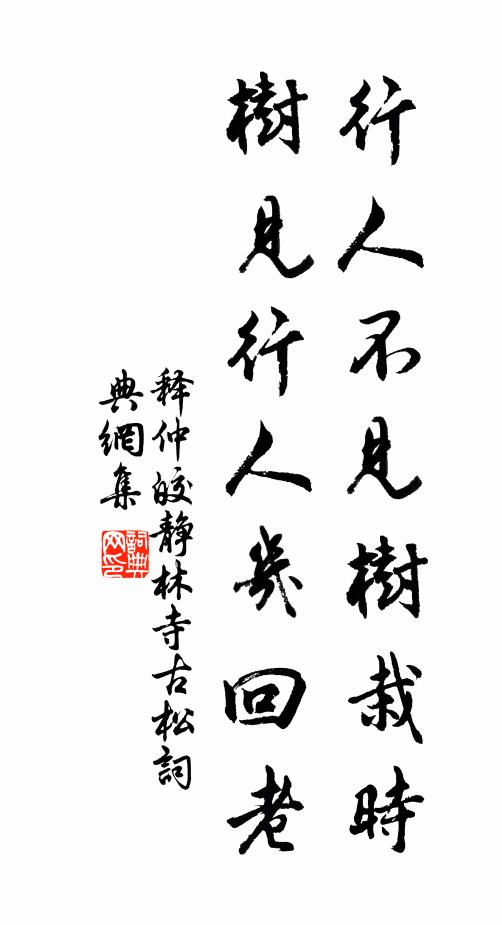 行人不見樹栽時
樹見行人幾回老
释仲皎靜林寺古松詞
典網集
詞典网印